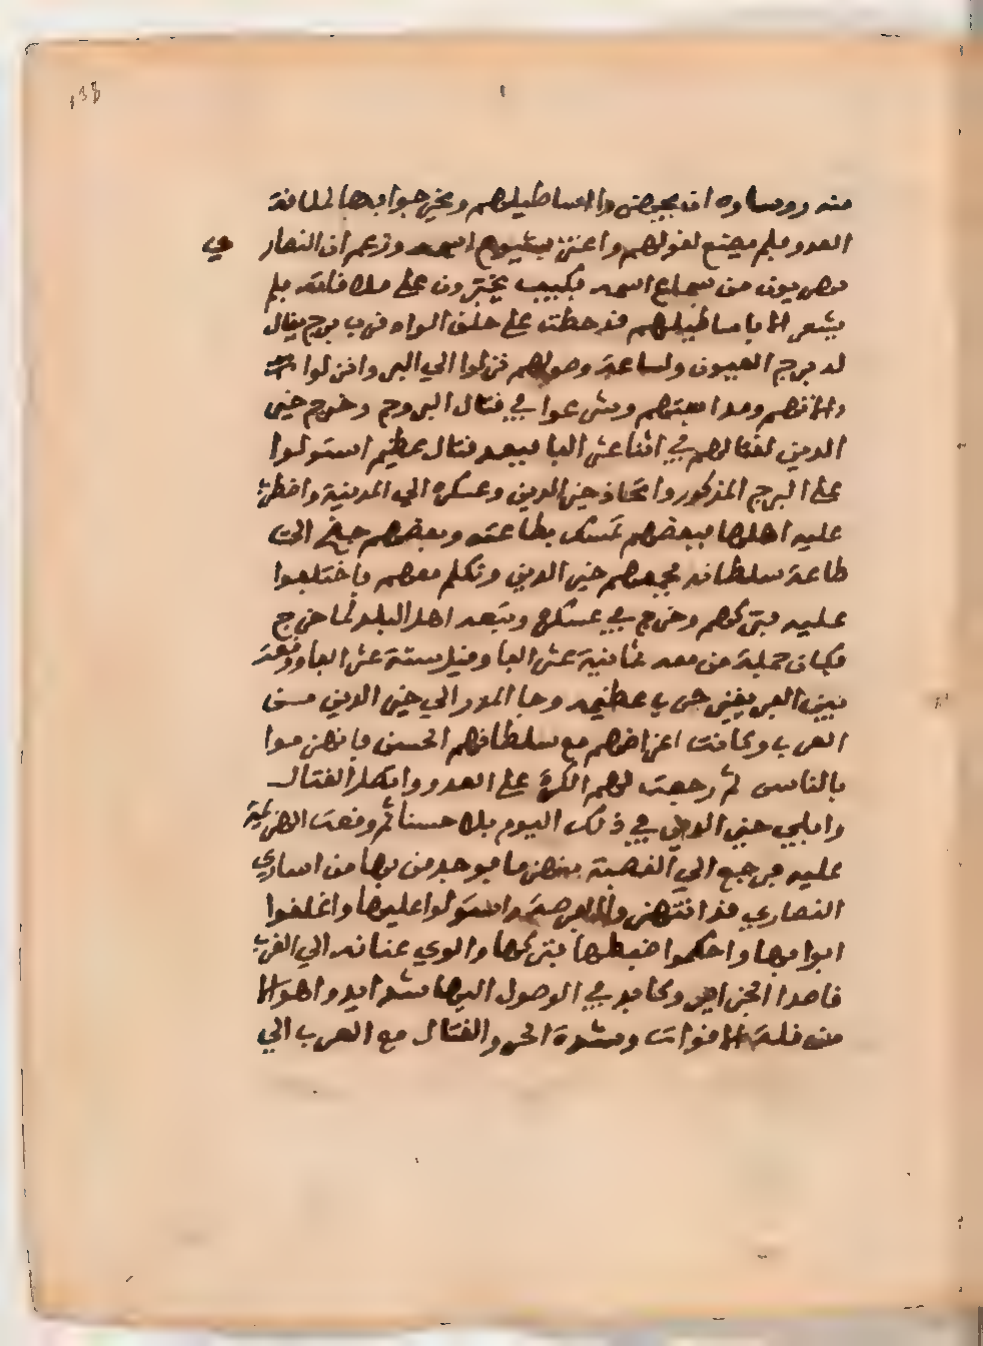 138
منه روساوه ان يجهض الاساطيلهم ويخرجوا بها لملاقة
العدو فلم يصنع لقولهم واعتز بشيوع اسمه وزعم ان النصاري
يهربون من سماع اسمه فكيف يجترون على ملاقاته فلم
يشعر الا باساطيلهم قد حطت على حلق الواد قرب برج يقال
له برج العيون ولساعة وصولهم نزلوا الي البر وانزلوا
والاتهم ومدافعهم وشرعوا في قتال البروج وخرج خير
الدين لقتالهم في اثنا عشر الفا فبعد قتال عظيم استولوا
على البرج المذكور وانحاز خير الدين وعسكره الي المدينة واضطرب
عليه اهلها فبعضهم تمسك بطاعته وبعضهم جنح الي
طاعة سلطانه فجمعهم خير الدين وتكلم معهم فاختلفوا
عليه فتركهم وخرج في عسكره وتبعه اهل البلد لما خرج
فكان جملة من معه ثمانية عشر الفا وقيل ستة عشر الفا ووقعت
بين الفريقين حرب عظيمه وجا المدد الي خير الدين من
العرب وكانت اغراضهم مع سلطانهم الحسن فانهزموا
بالناس ثم رجعت لهم الكرة على العدو واتصل القتال
وابلي خير الدين في ذلك اليوم بلاء حسنا ثم وقعت الهزيمة
عليه فرجع الي القصبة بنفسه فوجد من بها من اساري
النصاري قد انتهزوا الفرصة واستولوا عليها واغلقوا
ابوابها واحكموا ضبطها فتركها والوي عنانه الي الغرب
قاصدا الجزاير وكابد في الوصول اليها شدايد واهوالا
من قلة الاقوات وشدة الحر والقتال مع العرب الي